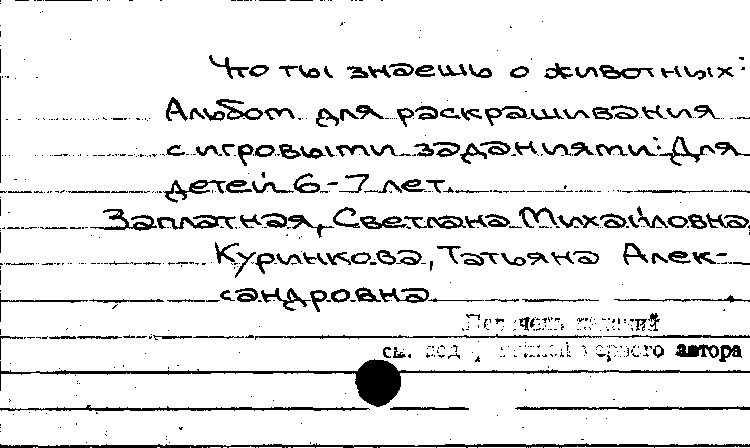 Что ты знаешь о животных:
Альбом для раскрашивания
с игровыми заданиями: Для
детей 6-7 лет.
Заплатная, Светлана Михайловна,
Куринкова, Татьяна Алек-
сандровна.
Перечень изданий
см. под фамилией первого автора